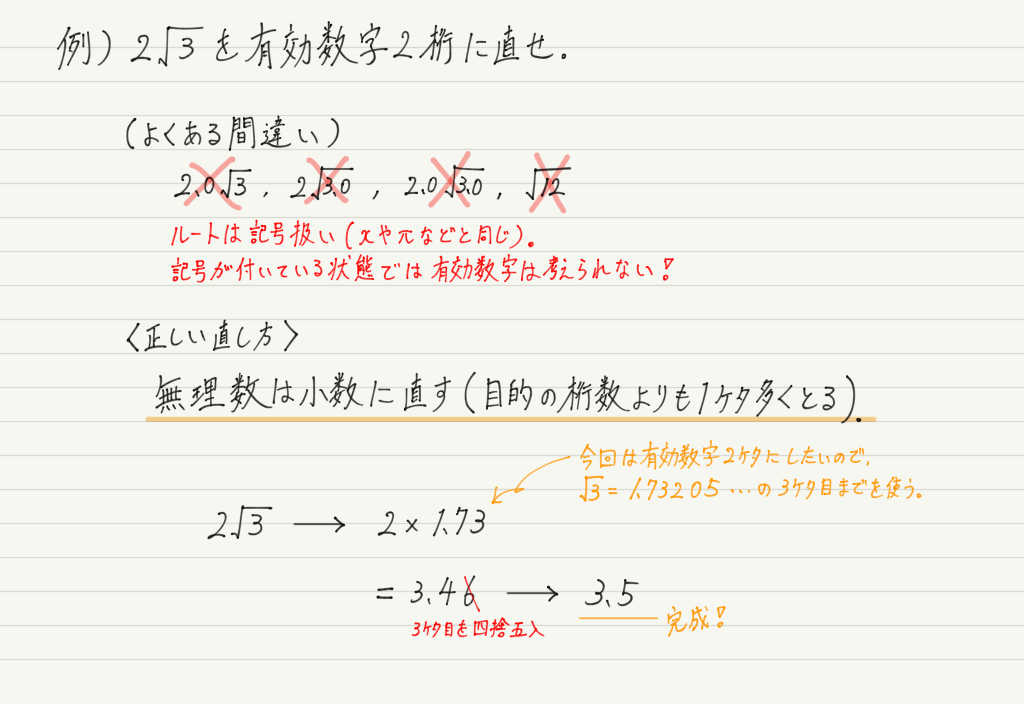 例) 2√3 を有効数字2桁に直せ.
(よくある間違い)
2.0√3 , 2√3.0 , 2.0√3.0 , √12
ルートは記号扱い (xやπなどと同じ)。
記号が付いている状態では有効数字は考えられない!
〈正しい直し方〉
無理数は小数に直す(目的の桁数よりも1ケタ多くとる).
今回は有効数字2ケタにしたいので,
√3 = 1.73205…の3ケタ目までを使う。
2√3 → 2 × 1.73
= 3.46 → 3.5
3ケタ目を四捨五入
完成!